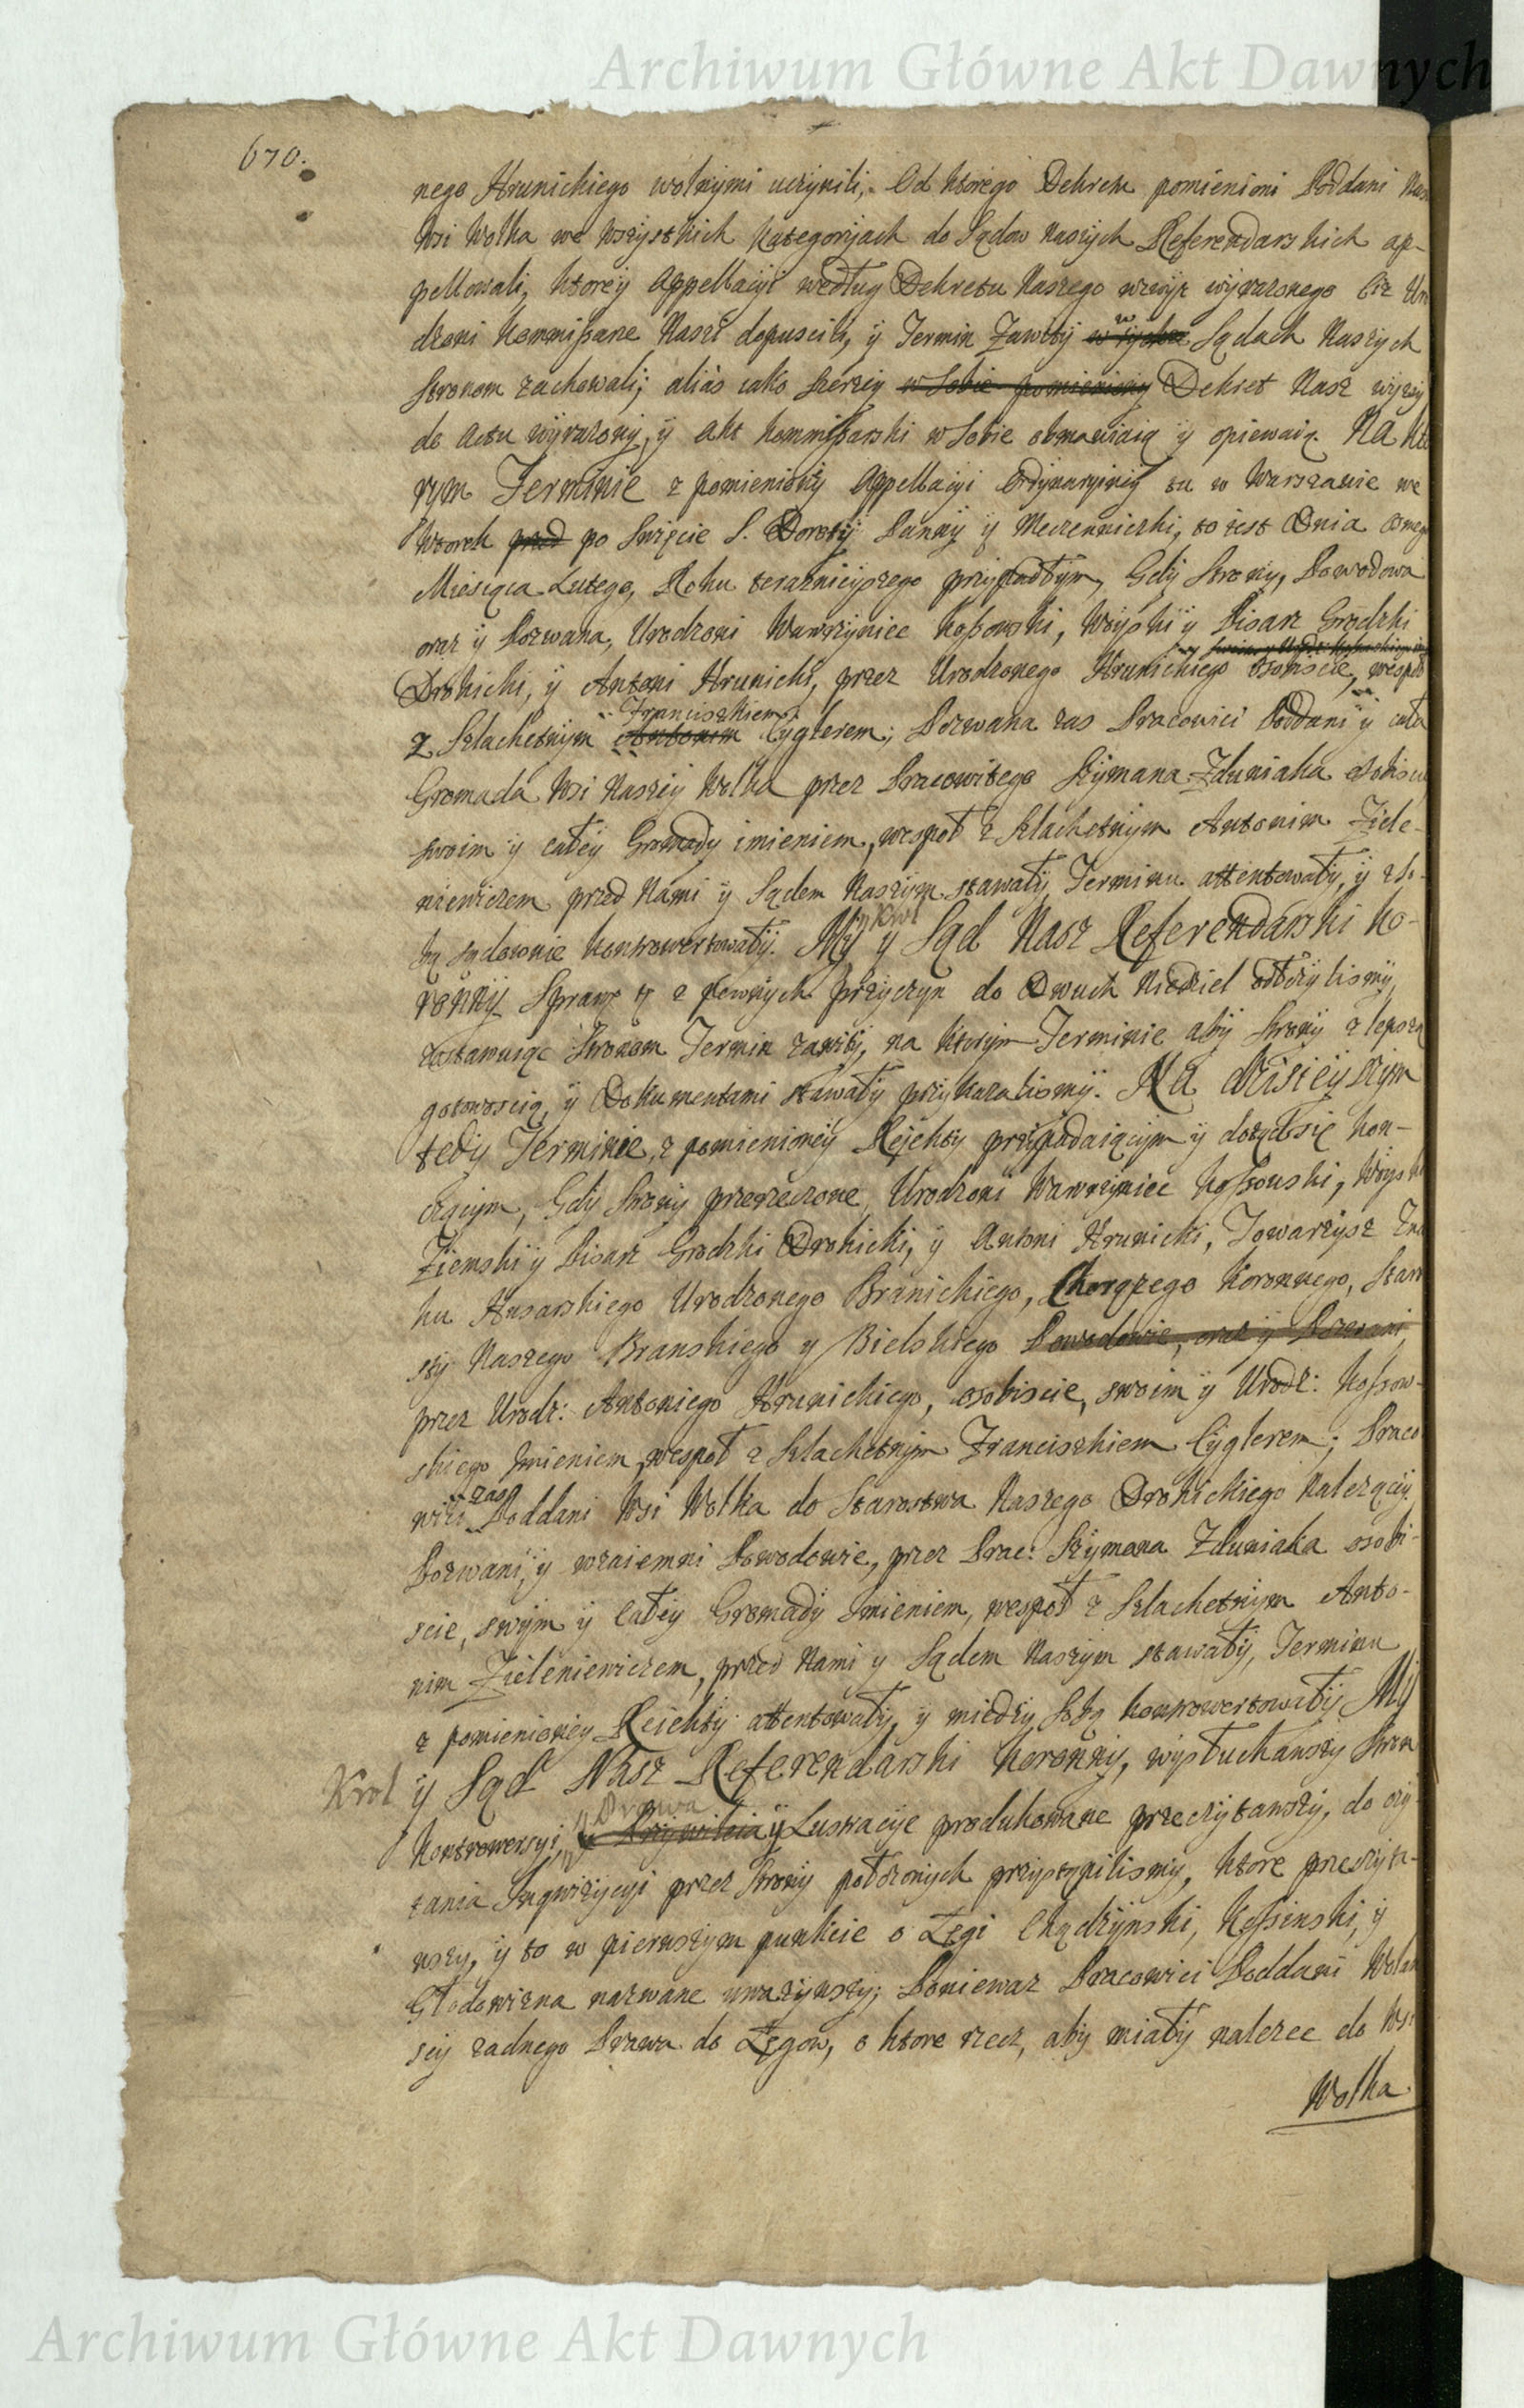 Archiwum Główne Akt Dawnych
670.
nego Hrunickiego wolnymi uczynili, Od ktorego Dekretu pomienioni Poddani
Wsi Wolka we wszystkich kategoryjach do Sądow Naszych Referendarskich ap-
pellowali, ktorey Appellacyi według Dekretu Naszego wzwyż wyrazonego Ciż
dzeni Kommissarze Nasi dopuscili, y Termin Zawity w Sądach Naszych
Stronom zachowali; alias iako szerzey w Sobie pomieniony Dekret Nasz wyzey
do Actu wyrazony, y Akt Kommissarski w Sobie obmawiaią y opiewaią. Na kto
rym Terminie z pomienioney Appellacyi Ordynaryiney tu w Warszawie we
Wtorek pred po Swięcie S. Doroty Panny y Męczenniczki, to iest Dnia osmego
Miesiąca Lutego, Roku teraznieyszego przypadłym, Gdy Strony, Powodowa
oraz y Pozwana, Urodzeni Wawrzyniec Kossowski, Woyski y Pisarz Grodzki
Drohicki, y Antoni Hrunicki, przez Urodzonego Hrunickiego osobiscie, wespoł
Franciszkiem
z Szlachetnym Antonim Cyglerem; Pozwana zas Pracowici Poddani y cała
Gromada Wsi Naszey Wolka przez Pracowitego Szymana Zduniaka osobiscie
swoim y całey Gromady imieniem, wespoł z Szlachetnym Antonim Ziele-
niewiczem przed Nami y Sądem Naszym stawały, Terminu attentowały, y z so-
bą sądownie kontrowertowały. My y Sąd Nasz Referendarski Ko-
ronny Sprawę tę z pewnych przyczyn do Dwuch Niedziel odłożylismy,
zostawuiąc Stronom Termin zawity, na ktorym Terminie aby Strony z lepszą
gotowoscią, y Dokumentami stawały przykazalismy. Na dzisieyszym
tedy Terminie, z pomienioney Rejekty przypadaiącym y dotąd się kon-
czącym, Gdy Strony przerzeczone, Urodzeni Wawrzyniec Kossowski, Woyski
Ziemski y Pisarz Grodzki Drohicki, y Antoni Hrunicki, Towarzysz Zna
ku Husarskiego Urodzonego Branickiego, Chorązego Koronnego, Staro
sty Naszego Branskiego y Bielskiego Powodowie, oraz y Pozwani,
przez Urodz: Antoniego Hrunickiego, osobiscie, swoim y Urodz: Kossow-
skiego Imieniem, wespoł z Szlachetnym Franciszkiem Cyglerem; Praco
zas
wici Poddani Wsi Wolka do Starostwa Naszego Drohickiego Nalezącey
Pozwani, y wzaiemni Powodowie, przez Prac: Szymana Zduniaka osobi-
scie, swym y całey Gromady Imieniem, wespoł z Szlachetnym Anto-
nim Zieleniewiczem, przed Nami y Sądem Naszym stawały, Terminu
z pomienioney Reiekty attentowały, y miedzy sobą kontrowertowały My
Krol y Sąd Nasz Referendarski Koronny, wysłuchawszy Stron
Prawa
Kontrowersyi, Przywileia y Lustracye produkowane przeczytawszy, do czy-
tania Inqwizycyi przez Strony położonych przystąpilismy, ktore przeczyta-
wszy, y to w pierwszym punkcie o Łęgi Chądzynski, Kossinski, y
Głodowizna nazwane uważywszy; Poniewaz Pracowici Poddani
scy zadnego Prawa do Łęgow, o ktore rzecz, aby miały nalezec do Wsi
Wolka
Archiwum Główne Akt Dawnych